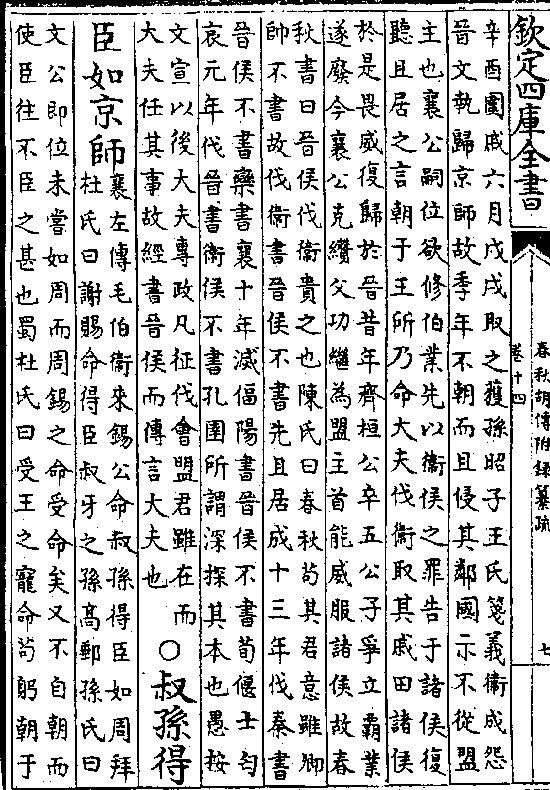 欽定四庫全書
春秋胡傳附録纂疏
卷十四
七
辛酉圍戚六月戊戌取之獲孫昭子王氏箋義衛成怨
晉文執歸京師故季年不朝而且侵其鄰國示不從盟
主也襄公嗣位欲修伯業先以衛侯之罪告于諸侯復
聽且居之言朝于王所乃命大夫伐衛取其戚田諸侯
於是畏威復歸於晉昔年齊桓公卒五公子爭立霸業
遂廢今襄公克纘父功繼為盟主首能威服諸侯故春
秋書曰晉侯伐衛貴之也陳氏曰春秋茍其君意雖卿
帥不書故伐衛書晉侯不書先且居成十三年伐秦書
晉侯不書欒書襄十年滅偪陽書晉侯不書荀偃士匄
哀元年伐晉書衛侯不書孔圉所謂深探其本也愚按
文宣以後大夫專政凡征伐會盟君雖在而
大夫任其事故經書晉侯而傳言大夫也
○叔孫得
臣如京師
襄左傳毛伯衛來錫公命叔孫得臣如周拜
杜氏曰謝賜命得臣叔牙之孫高郵孫氏曰
文公即位未嘗如周而周錫之命受命矣又不自朝而
使臣往不臣之甚也蜀杜氏曰受王之寵命茍躬朝于